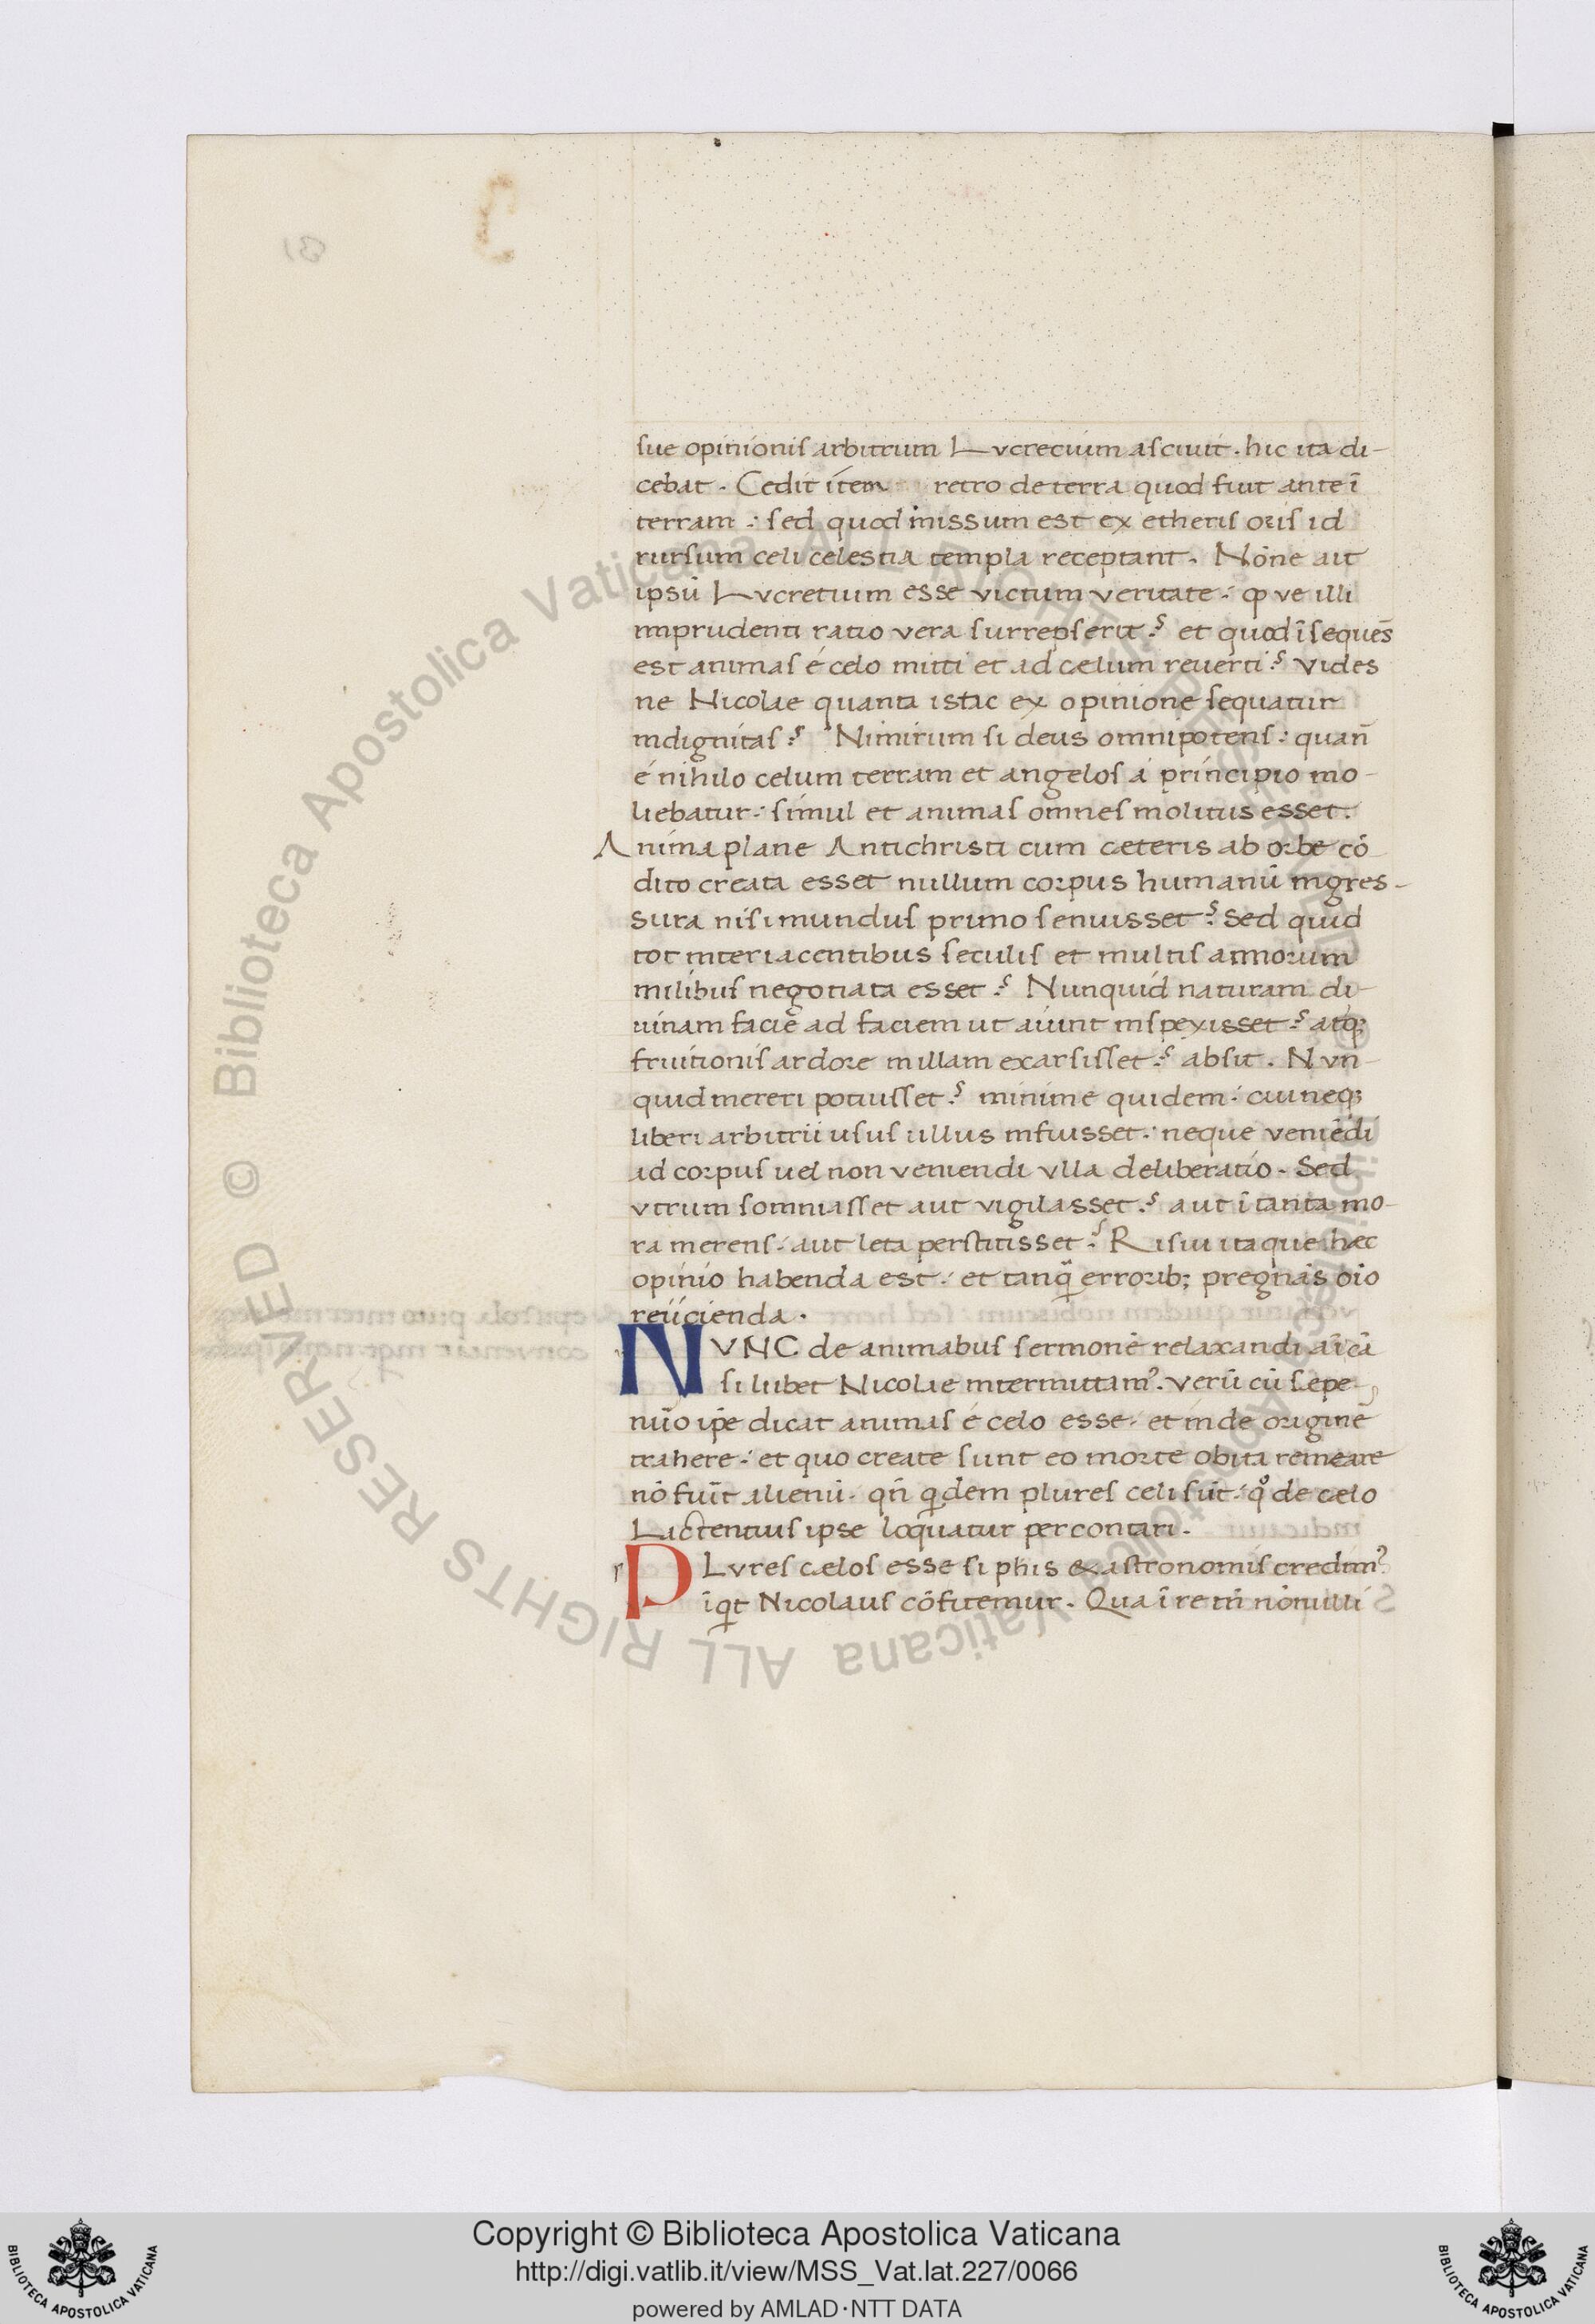 sue opinionis arbitrum Lvcrecium asciuit. hic ita di-
cebat. Cedit item retro de terra quod fuit ante ī
terram: sed quod missum est ex etheris oris id
rursum celi celestia templa receptant. Nōne ait
ipsū Lvcretium esse victum veritate: ꝙ ve illi
imprudenti ratio vera surrepserit? et quod īsequēs
est animas é celo mitti et ad cælum reuerti? Vides
ne Nicolae quanta istac ex opinione sequatur
indignitas? Nimirum si deus omnipotens: quan̄
é nihilo celum terram et angelos á principio mo-
liebatur: simul et animas omnes molitus esset.
Anima plane Antichristi cum cæteris ab orbe cō
dito creata esset nullum corpus humanū ingres-
sura nisi mundus primo senuisset? Sed quid
tot interiacentibus seculis et multis annorum
milibus negotiata esset? Nunquid naturam di-
uinam faciē ad faciem ut aiunt inspexisset? atqꝫ
fruitionis ardore in illam exarsisset? absit. Nvn-
quid mereri potuisset? minime quidem: cui neqꝫ
liberi arbitrii usus ullus infuisset: neque veniēdi
ad corpus uel non veniendi vlla deliberatio. Sed
vtrum somniasset aut vigilasset? aut ī tanta mo-
ra merens: aut leta perstitisset? Risui itaque hæc
opinio habenda est: et tanꝗ̄ erroribꝫ pregnās oīo
reiicienda.
NVNC de animabus sermonē relaxandi aī cā
si lubet Nicolae intermittamꝰ. Verū cū sepe-
nūo ip̄e dicat animas é celo esse: et inde originē
trahere: et quo create sunt eo morte obita remeare
nō fuīt alienū. qn̄ qͥdem plures celi sūt: qͦ de celo
Lactentius ipse loquatur percontari.
PLvres cælos esse si ph̄is & astronomis credimꝰ
īqͥt Nicolaus cōfitemur. Qua ī re tn̄ nōnulli
Copyright © Biblioteca Apostolica Vaticana
http://digi.vatlib.it/view/MSS_Vat.lat.227/0066
powered by AMLAD·NTT DATA
BIBLIOTECA APOSTOLICA VATICANA
BIBLIOTECA APOSTOLICA VATICANA
© Biblioteca Apostolica Vaticana ALL RIGHTS RESERVED © Biblioteca Apostolica Vaticana ALL RIGHTS RESERVED